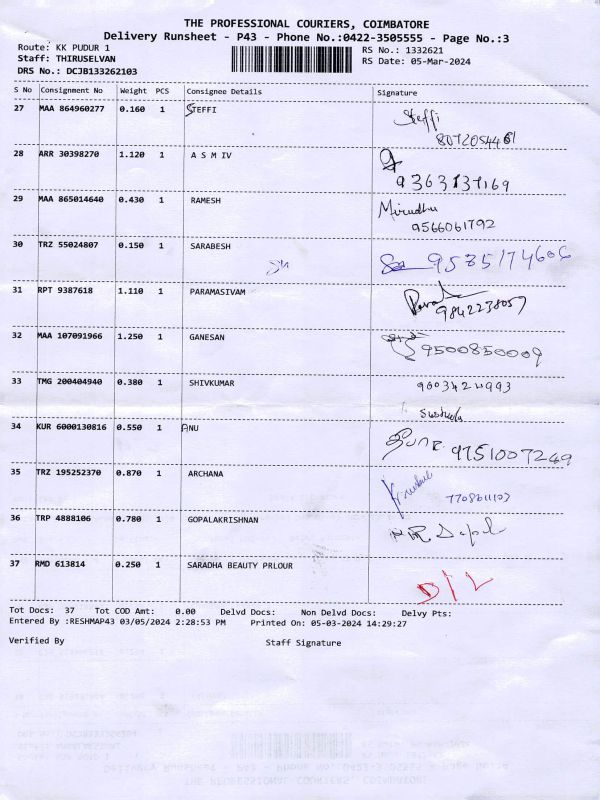 THE PROFESSIONAL COURIERS, COIMBATORE
Delivery Runsheet - P43 - Phone No.:0422-3505555 - Page No.:3
Route: KK PUDUR 1
RS No.: 1332621
Staff: THIRUSELVAN
RS Date: 05-Mar-2024
DRS No.: DCJB133262103
S No Consignment No Weight PCS Consignee Details Signature
27 MAA 864960277 0.160 1 STEFFI Steffi
8072054461
28 ARR 30398270 1.120 1 A S M IV
9363137169
29 MAA 865014640 0.430 1 RAMESH Mirudhu
9566061792
30 TRZ 55024807 0.150 1 SARABESH
9585174606
31 RPT 9387618 1.110 1 PARAMASIVAM
9842238057
32 MAA 107091966 1.250 1 GANESAN
9500850009
33 TMG 200404940 0.380 1 SHIVKUMAR
34 KUR 6000130816 0.550 1 ANU
9751007249
35 TRZ 195252370 0.870 1 ARCHANA
36 TRP 4888106 0.780 1 GOPALAKRISHNAN
37 RMD 613814 0.250 1 SARADHA BEAUTY PRLOUR D/L
Tot Docs: 37 Tot COD Amt: 0.00 Delvd Docs: Non Delvd Docs: Delvy Pts:
Entered By :RESHMAP43 03/05/2024 2:28:53 PM Printed On: 05-03-2024 14:29:27
Verified By Staff Signature